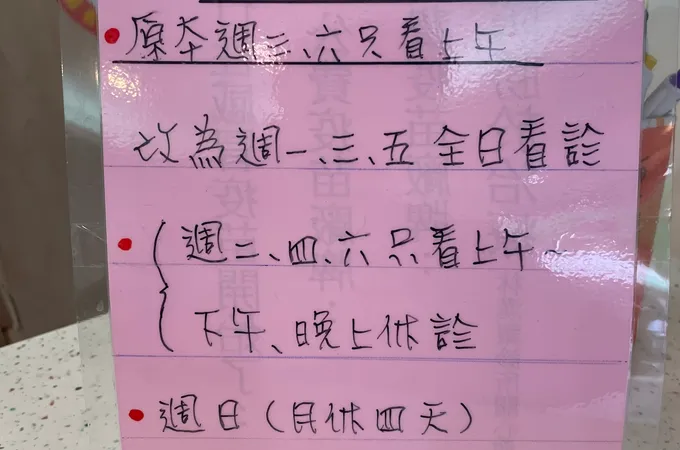 原本週三、六只看上午
改為週一、三、五全日看診
週二、四、六只看上午~
下午、晚上休診
週日(月休四天)